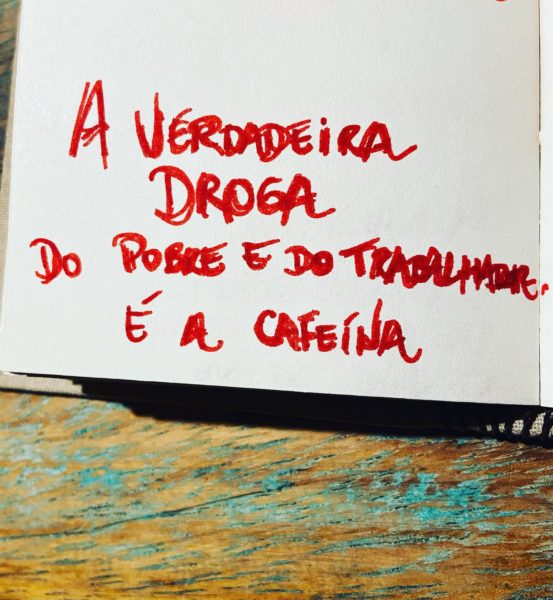 A VERDADEIRA
DROGA
DO POBRE E DO TRABALHADOR
É A CAFEÍNA